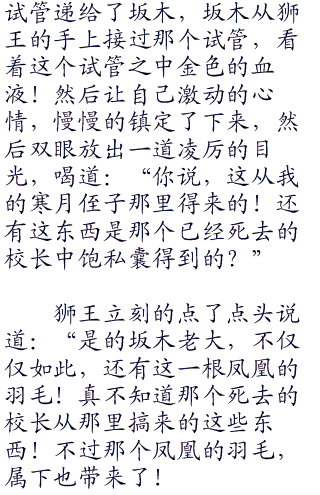 试管递给了坂木，坂木从狮
王的手上接过那个试管，看
着这个试管之中金色的血
液！然后让自己激动的心
情，慢慢的镇定了下来，然
后双眼放出一道凌厉的目
光，喝道：“你说，这从我
的寒月侄子那里得来的！还
有这东西是那个已经死去的
校长中饱私囊得到的？”
狮王立刻的点了点头说
道：“是的坂木老大，不仅
仅如此，还有这一根凤凰的
羽毛！真不知道那个死去的
校长从那里搞来的这些东
西！不过那个凤凰的羽毛，
属下也带来了！